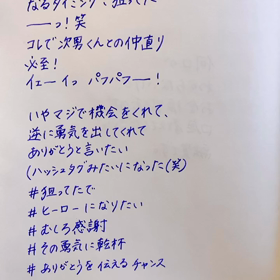 なるタイミング、狙ってた
ーっ！笑
コレで次男くんとの仲直り
必至！
イェーイっ パフパフー！
いやマジで機会をくれて、
逆に勇気を出してくれて
ありがとうと言いたい
(ハッシュタグみたいになった(笑)
#狙ってたで
#ヒーローになりたい
#むしろ感謝
#その勇気に乾杯
#ありがとうを伝えるチャンス